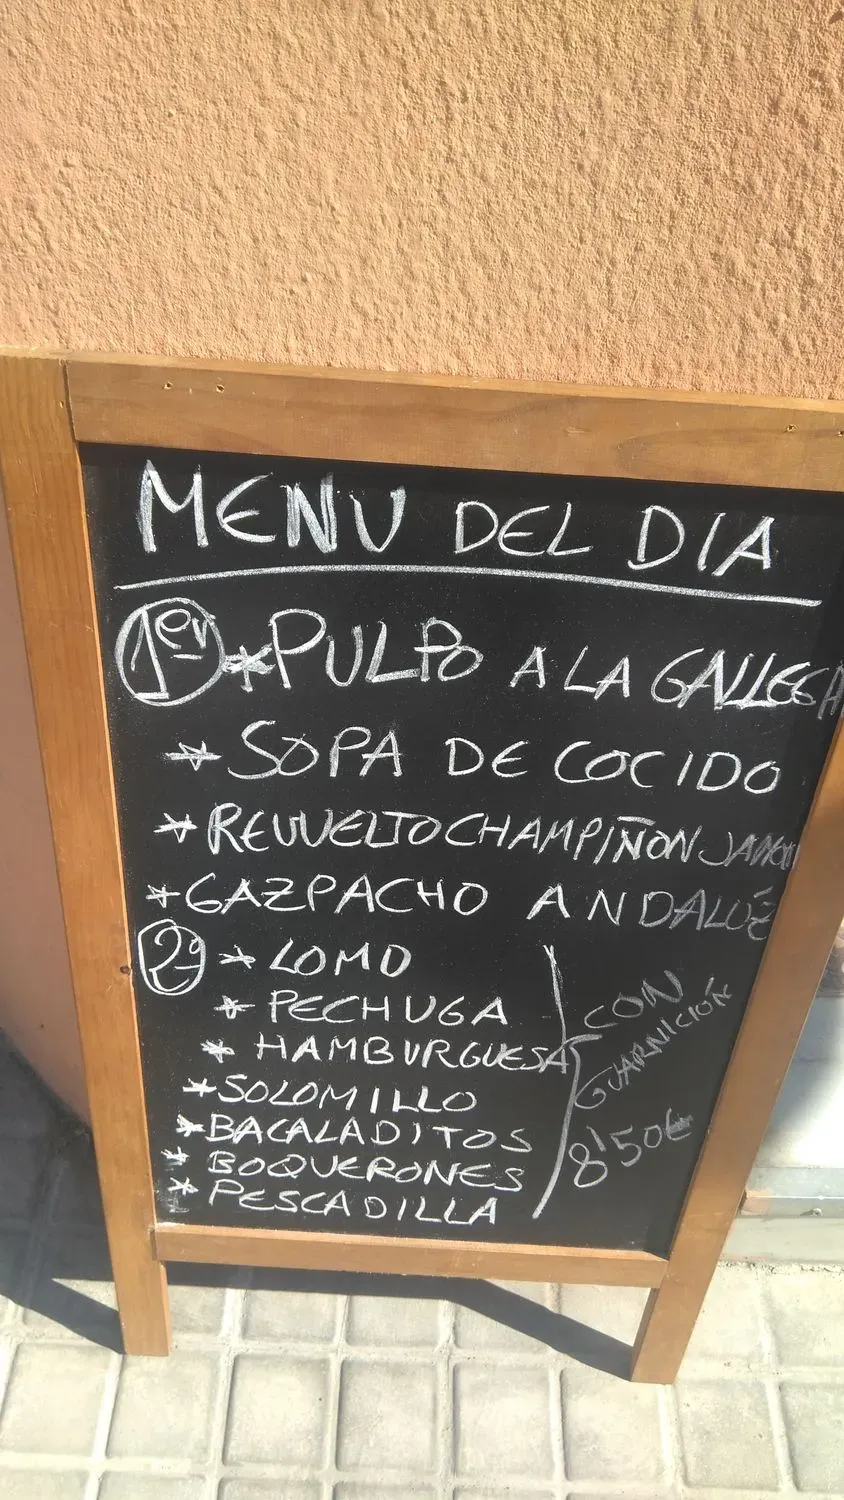 MENU DEL DIA
1er * PULPO A LA GALLEGA
* SOPA DE COCIDO
* REVVELTO CHAMPIÑON JAMON
* GAZPACHO ANDALUZ
2º * LOMO
* PECHUGA
* HAMBURGUESA
* SOLOMILLO
* BACALADITOS
* BOQUERONES
* PESCADILLA
CON
GUARNICIÓN
8'50€